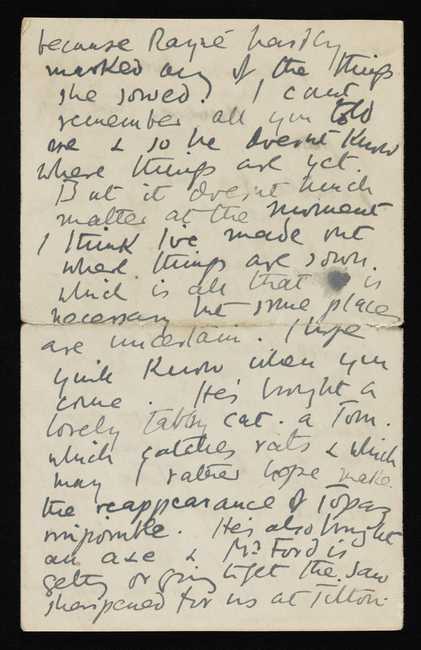 because Rayné hardly
marked any of the things
she sowed. I cant
remember all you told
me & so he doesnt know
where things are yet.
But it doesnt much
matter at the moment
I think Ive made out
where things are sown.
which is all that is
necessary but some places
are uncertain. I hope
you'll know when you
come. He's brought a
lovely tabby cat. a Tom.
which catches rats & which
may I rather hope make
the reappearance of Topaz
impossible. He's also brought
an axe & Mr Ford is
getting or going to get the saw
sharpened for us at Tilton